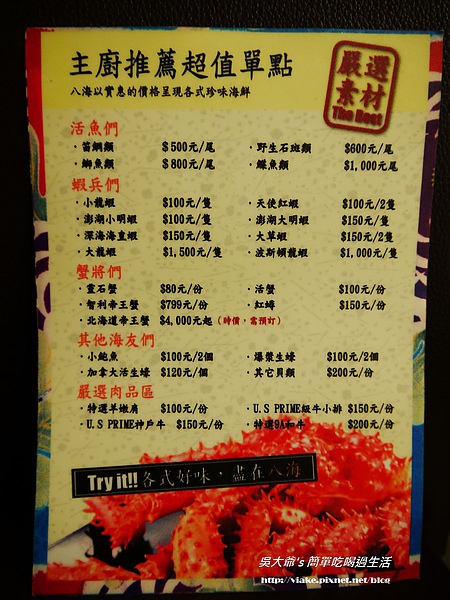 主廚推薦超值單點
八海以實惠的價格呈現各式珍味海鮮
嚴選
素材
The Best
活魚們
·笛鯛類 $500元/尾 ·野生石斑類 $600元/尾
·鮣魚類 $800元/尾 ·鰈魚類 $1,000元/尾
蝦兵們
·小龍蝦 $100元/隻 ·天使紅蝦 $100元/2隻
·澎湖小明蝦 $100元/隻 ·澎湖大明蝦 $150元/隻
·深海海直蝦 $150元/隻 ·大草蝦 $150元/2隻
·大龍蝦 $1,500元/隻 ·波斯頓龍蝦 $1,000元/隻
蟹將們
·靈石蟹 $80元/份 ·活蟹 $100元/份
·智利帝王蟹 $799元/份 ·紅蟳 $150元/份
·北海道帝王蟹 $4,000元起 (時價,需預訂)
其他海友們
·小鮑魚 $100元/2個 ·爆漿生蠔 $100元/2個
·加拿大活生蠔 $120元/個 ·其它貝類 $200元/份
嚴選肉品區
·特選羊嫩肩 $100元/份 ·U.S PRIME級牛小排 $150元/份
·U.S PRIME神戶牛 $150元/份 ·特選9A和牛 $200元/份
Try it!! 各式好味,盡在八海
吳大爺's 簡單吃喝過生活
http://viake.pixnet.net/blog